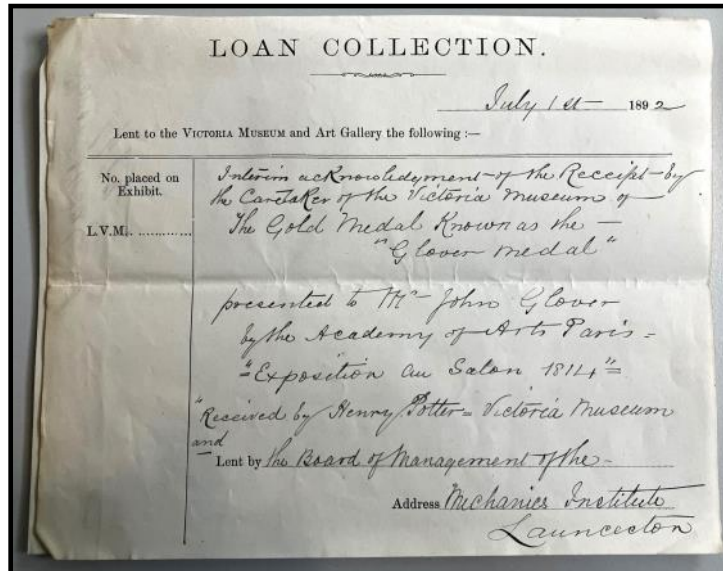 LOAN COLLECTION.
July 1st 1892
Lent to the VICTORIA MUSEUM and Art Gallery the following :—
No. placed on
Exhibit.
L.V.M. ............
Interim acknowledgment of the Receipt by
the Caretaker of the Victoria Museum of
The Gold Medal Known as the —
"Glover Medal"
presented to Mr John Glover
by the Academy of Arts Paris =
"Exposition au Salon 1814"=
"Received by Henry Potter = Victoria Museum
and
Lent by the Board of Management of the -
Address Mechanics Institute
Launceston